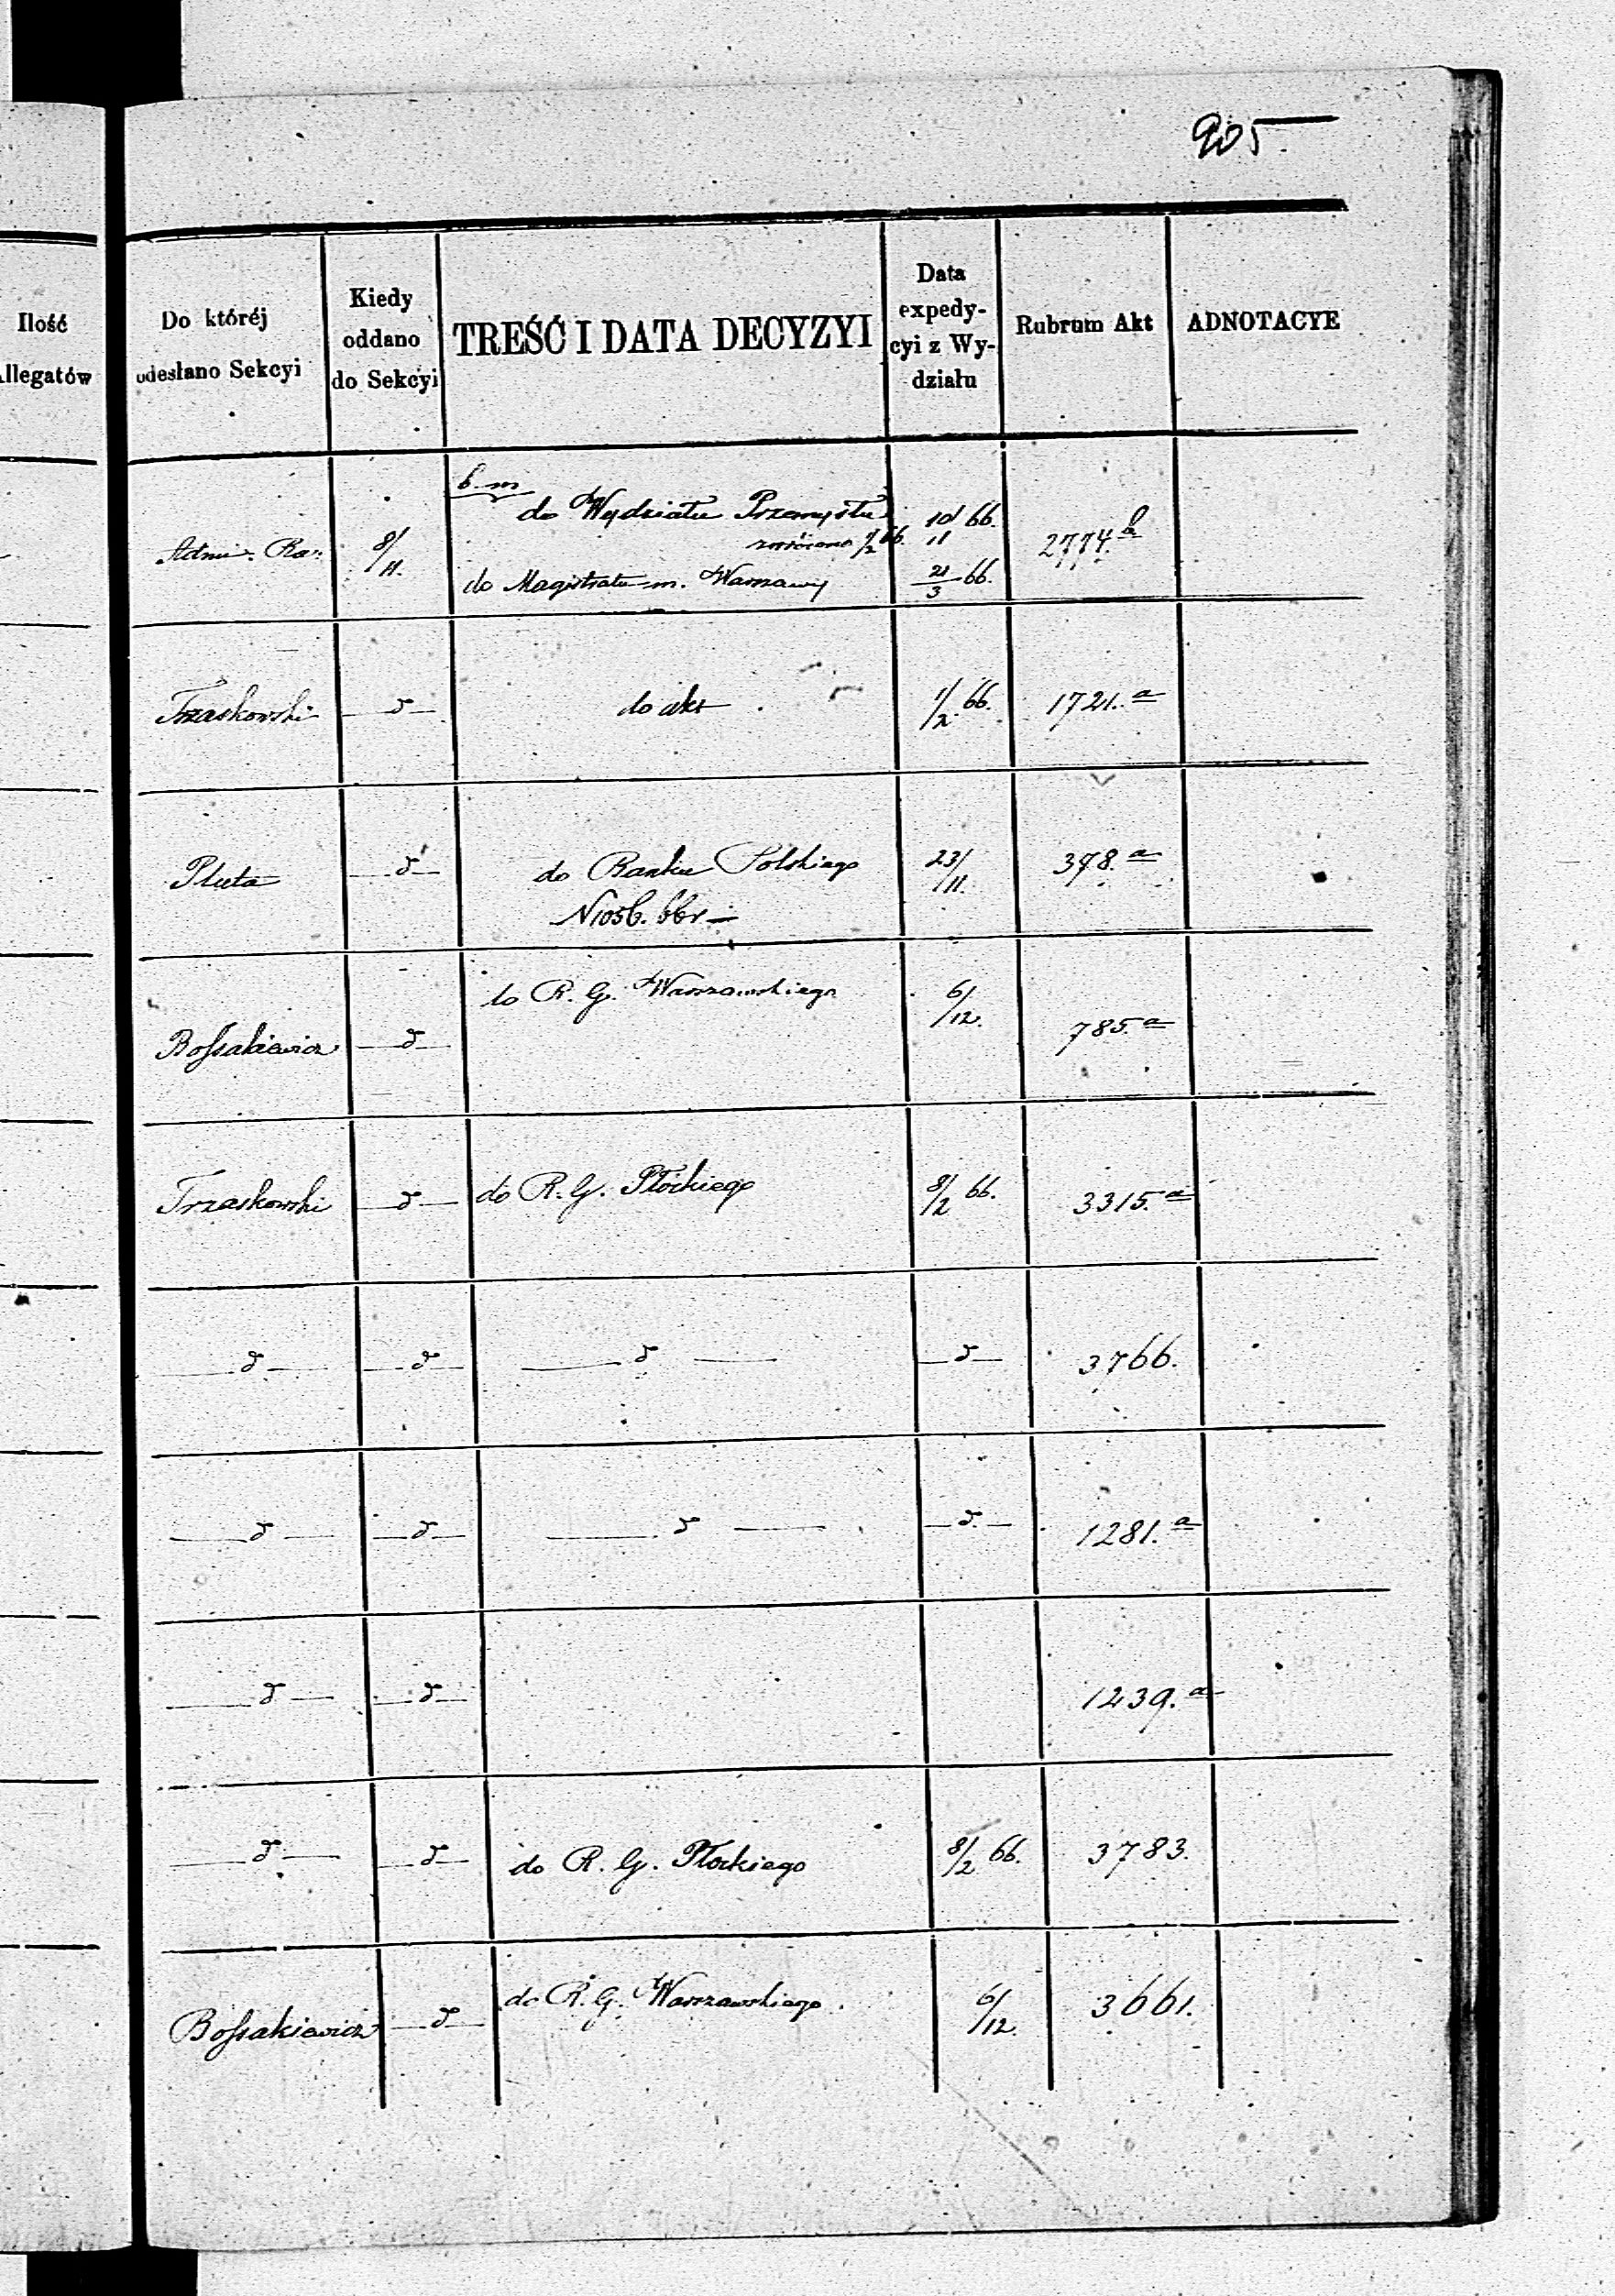 205
Ilość
Allegatów
Do któréj
odesłano Sekcyi
Kiedy
oddano
do Sekcyi
TREŚĆ I DATA DECYZYI
Data
expedy-
cyi z Wy-
działu
Rubrum Akt
ADNOTACYE
b. m
do Wydziału Przemysłu 10/11 66.
Admi. Ra. 8/11. zwrócono 2774.b
do Magistratu m. Warszawy 21/3 66.
Trzaskowski d do akt 1/2 66. 1721.a
Pluta d do Banku Polskiego 23/11. 378.a
do R. G. Warszawskiego 6/12.
Bossakiewicz d 785.a
Trzaskowski d do R. G. Płockiego 8/2 66. 3315.a
d d d d 3766.
d d d d 1281.a
d d 1239.a
d d do R. G. Płockiego 8/2 66. 3783.
do R. G. Warszawskiego. 6/12. 3661.
Bossakiewicz d